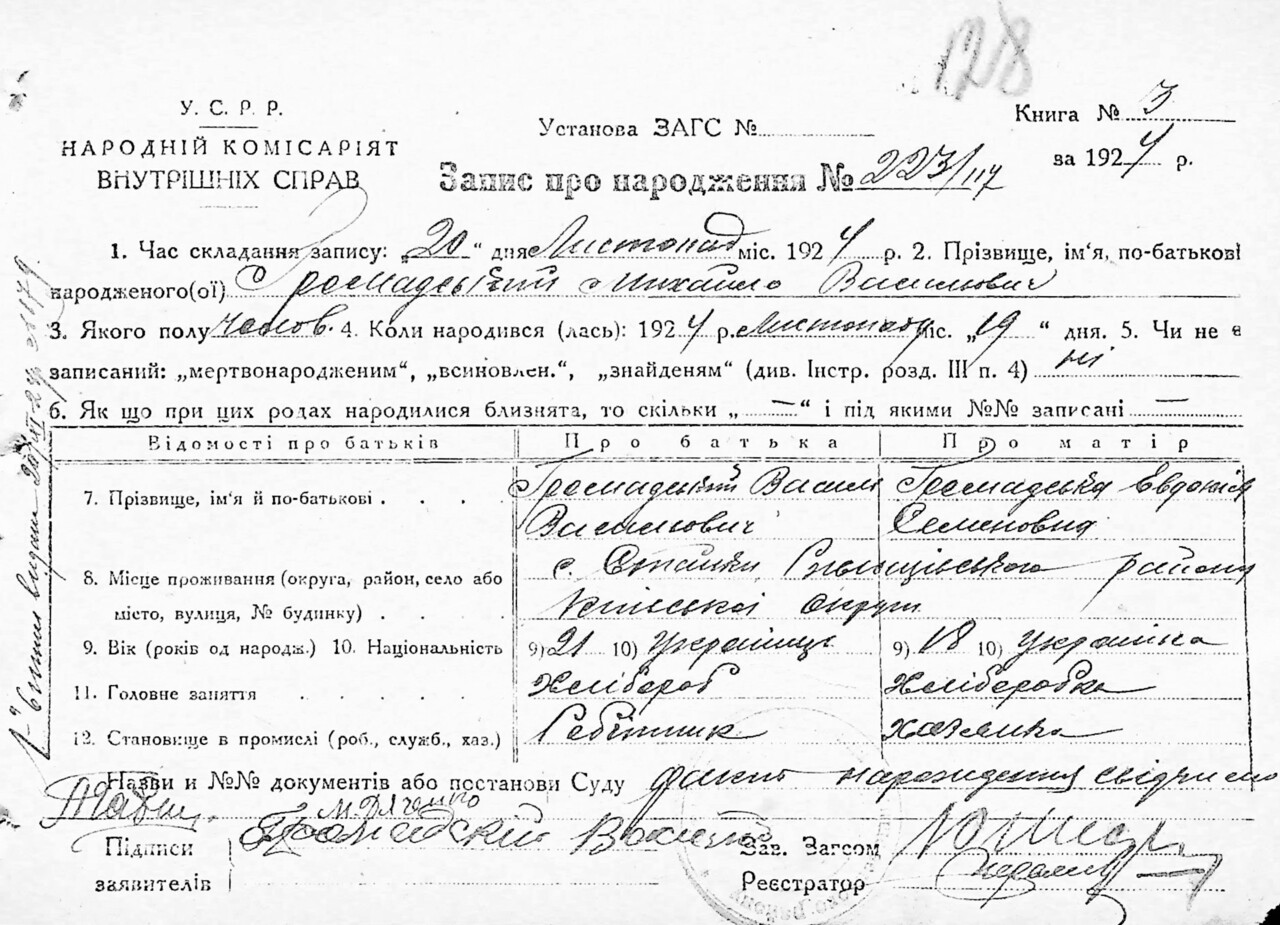 128
У. С. Р. Р.
НАРОДНІЙ КОМІСАРІЯТ
ВНУТРІШНІХ СПРАВ
Установа ЗАГС №
Книга № 3
за 1924 р.
Запис про народження № 223/117
1. Час складання запису: „20“ дня Листопад міс. 1924 р. 2. Прізвище, ім'я, по-батькові
народженого(ої) Громадський Михайло Васильович
3. Якого полу чолов. 4. Коли народився (лась): 1924 р. Листопаду міс. „19“ дня. 5. Чи не є
записаний: „мертвонародженим“, „всиновлен.“, „знайденям“ (див. Інстр. розд. III п. 4) ні
6. Як що при цих родах народилися близнята, то скільки „—“ і під якими №№ записані —
Відомості про батьків Про батька Про матір
7. Прізвище, ім'я й по-батькові . . . . Громадський Васил Громадська Евдокія
Васильович Семеновна
8. Місце проживання (округа, район, село або с. Стайки району
місто, вулиця, № будинку) . . . . Київської Округи
9. Вік (років од народж.) 10. Національність 9) 21 10) Українець 9) 18 10) Українка
11. Головне заняття . . . . . Хлібороб Хліборобка
12. Становище в промислі (роб., служб., хаз.) Робітник Хазяйка
Назви и №№ документів або постанови Суду факт народження
М. Дяченко
Підписи Громадский Василь Зав. Загсом
заявителів Реєстратор